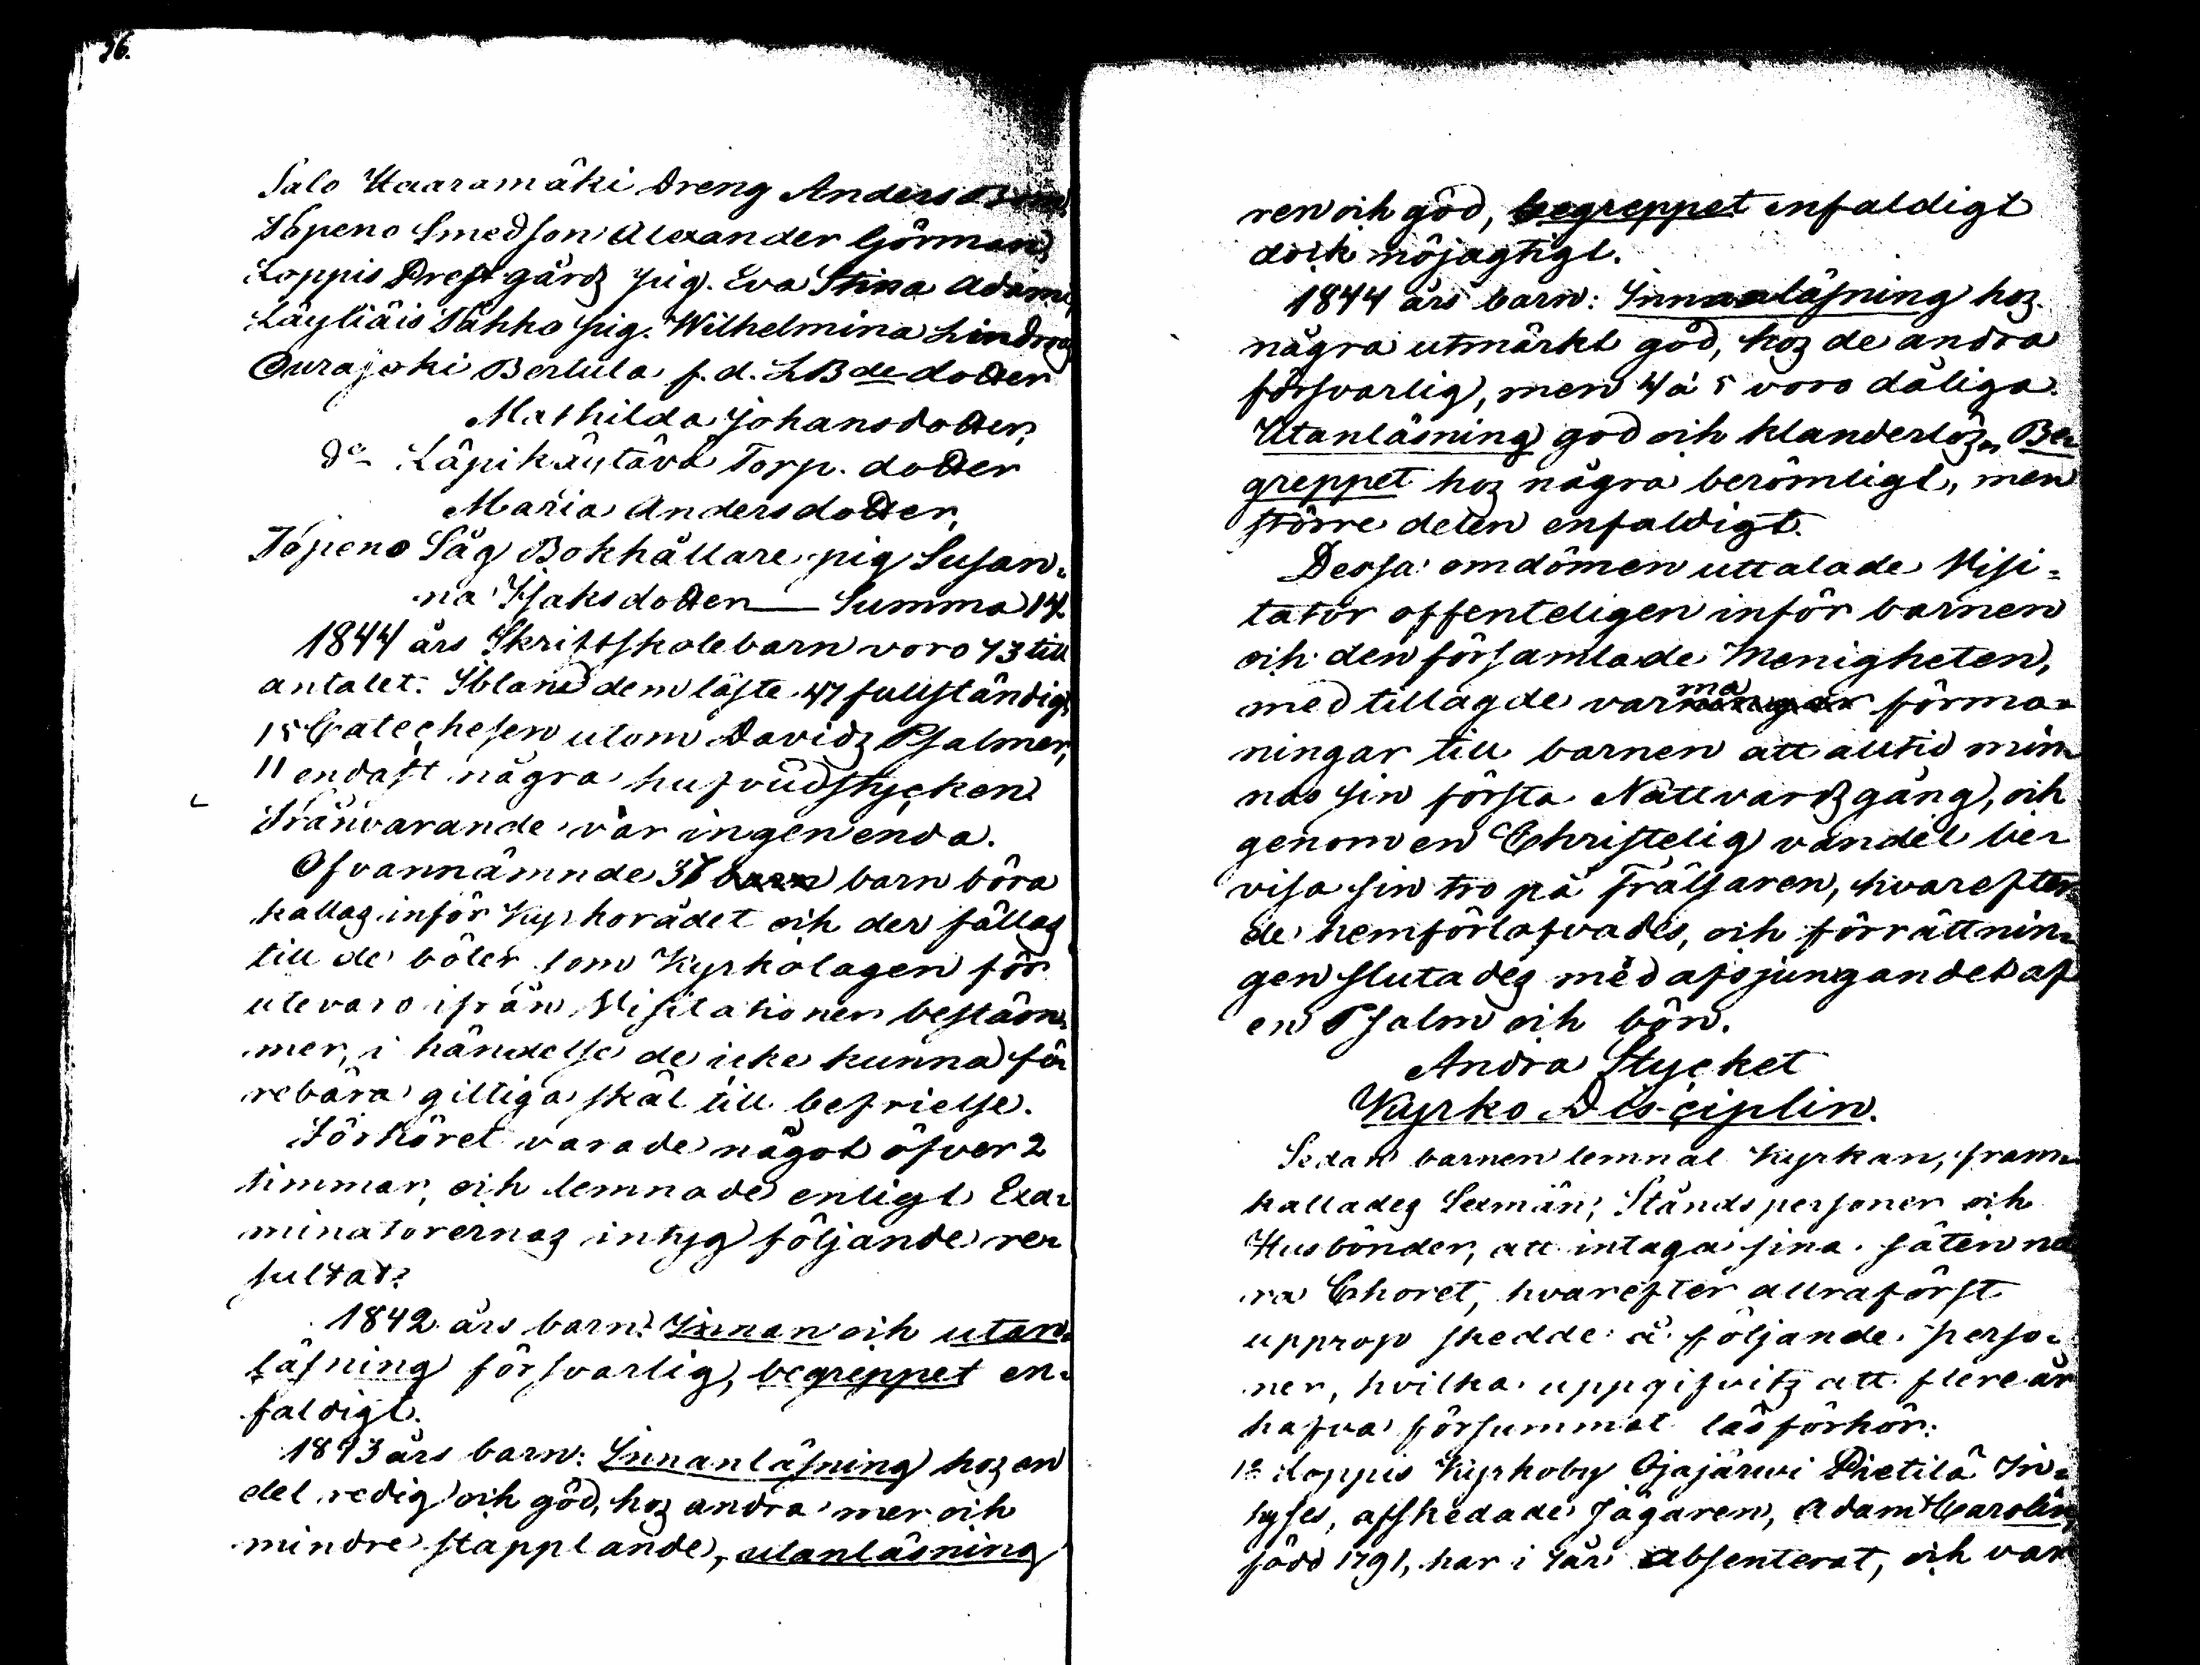 36.
Salo Haaramäki Dreng Anders
Topeno Smedson Alexander Görman,
Loppis Prestgårds pig. Eva Stina Adams,
Läyliäis Tähko pig. Wilhelmina Lindroos
Ourajoki Bertula f.d. LBde dotter
Mathilda Johansdotter,
do Läpikäytävä Torp. dotter
Maria Andersdotter,
Topeno Såg Bokhållare pig Susan-
na Isaksdotter — Summa 14.
1844 års Skriftskolebarn voro 73 till
antalet. Ibland dem läste 47 fullständigt,
15 Catechesen utom Davids Psalmer,
11 endast några hufvudstycken.
Frånvarande var ingen enda.
Ofvannämnde 37 barn barn böra
kallas inför Kyrkorådet och der fällas
till de böter som Kyrkolagen för
utevaro ifrån Visitationer bestäm-
mer, i händelse de icke kunna fö-
rebära giltiga skäl till befrielse.
Förhöret varade något öfver 2
timmar, och lemnade enligt Exa-
minatorernas intyg följande re-
sultat:
1842 års barn: Innan och utan-
läsning försvarlig, begreppet en-
faldigt.
1843 års barn: Innanläsning hos en
del redig och god, hos andra mer och
mindre stapplande, utanläsning
ren och god, begreppet enfaldigt
dock nöjagtigt.
1844 års barn: Innanläsning hos
några utmärkt god, hos de andra
försvarlig, men 4 à 5 voro dåliga.
Utanläsning god och klanderlös, Be-
greppet hos några berömligt, men
större delen enfaldigt.
Dessa omdömen uttalade Visi-
tator offenteligen inför barnen
och den församlade Menigheten,
med tillagde varma förma-
ningar till barnen att alltid min-
nas sin första Nattvardsgång, och
genom en Christelig vandel be-
visa sin tro på Frälsaren, hvarefter
de hemförlofvades, och förrättnin-
gen slutades med afsjungandet af
en Psalm och bön.
Andra Stycket
Kyrko Disciplin.
Sedan barnen lemnat Kyrkan, fram-
kallades Sexmän, Ståndspersoner och
Husbönder, att intaga sina säten nä-
ra Choret, hvarefter allraförst
upprop skedde å följande perso-
ner, hvilka uppgifvits att flere år
hafva försummat läsförhör:
1o Loppis Kyrkoby Ojajärwi Pietilä In-
hyses, afskedade Jägaren, Adam Carolin,
född 1791, har i 7 år absenterat, och var